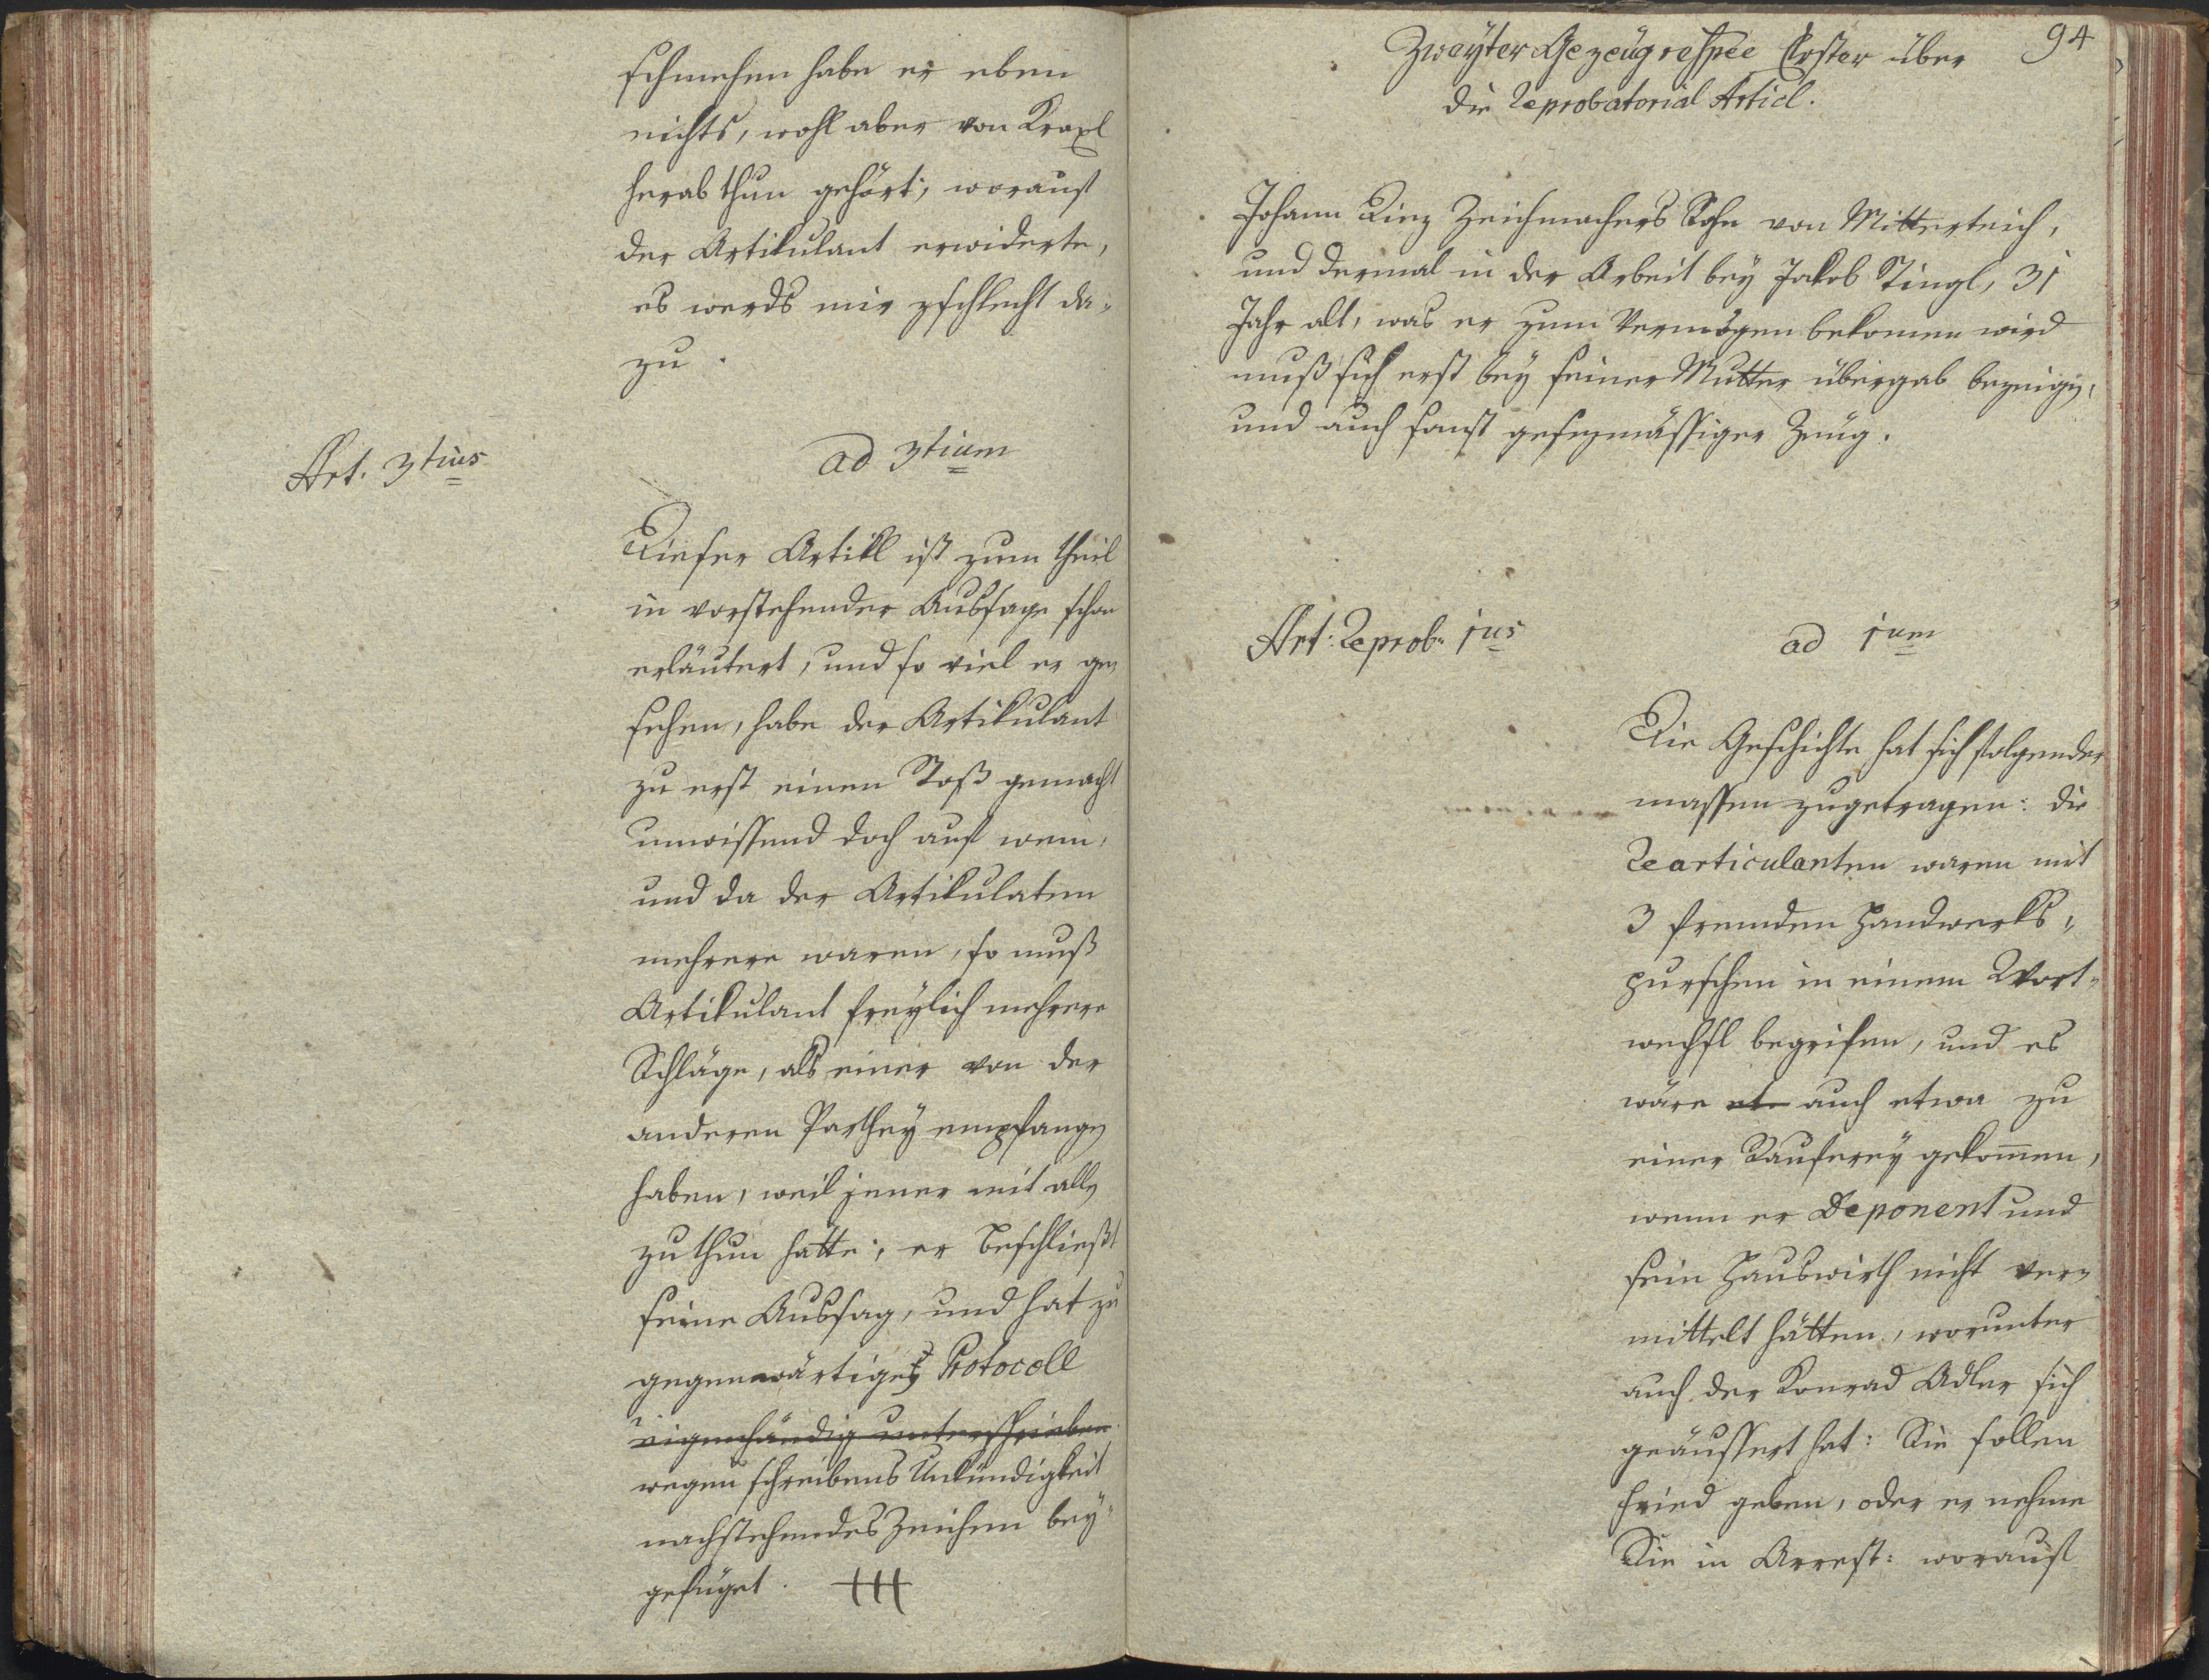 schmehen habe er eben
nichts, wohl aber von Kraxl
herab thun gehört; worauf
der Artikulant erwiderte,
es werds mir zschlecht da-
zu.
Art. 3tius
ad 3tium
Dieser Artikl ist zum theil
in vorstehender Aussage schon
erläutert, und so viel er ge-
sehen, habe der Artikulant
zu erst einen Stoß gemacht
unwissend doch auf wem,
und da der Artikulaten
mehrere waren, so muß
Artikulant freylich mehrere
Schläge, als einer von der
anderen Parthey empfangen
haben, weil jener mit allen
zu thun hatte; er beschließt
seine Aussag, und hat zu
gegenwärtiges Protocoll
eigenhändig unterschrieben
wegen schreibens Unkündigkeit
nachstehendes Zeichen bey-
gefüget. +++
94
Zweyter Gezeüg respée Erster über
die Reprobatorial Articl.
Johann Zeichmachers Sohn von Mitterteich,
und dermal in der Arbeit bey Jakob Stingl, 31
Jahr alt, was er zum Vermögen bekomen wird
muß sich erst bey seiner Mutter übergab bezeigen,
und auch sonst gesezmässiger Zeug.
Art: Reprob. 1us
ad 1um
Die Geschichte hat sich folgender
massen zugetragen: die
Rearticulanten waren mit
3 fremden Handwerks-
purschen in einem Wort-
wechsl begrifen, und es
wäre et auch etwa zu
einer Rauferey gekommen,
wenn er Deponent und
sein Hauswirth nicht ver-
mittelt hätten, worunter
auch der Konrad Adler sich
geäussert hat: Sie sollen
Fried geben, oder er nehme
Sie in Arrest: worauf